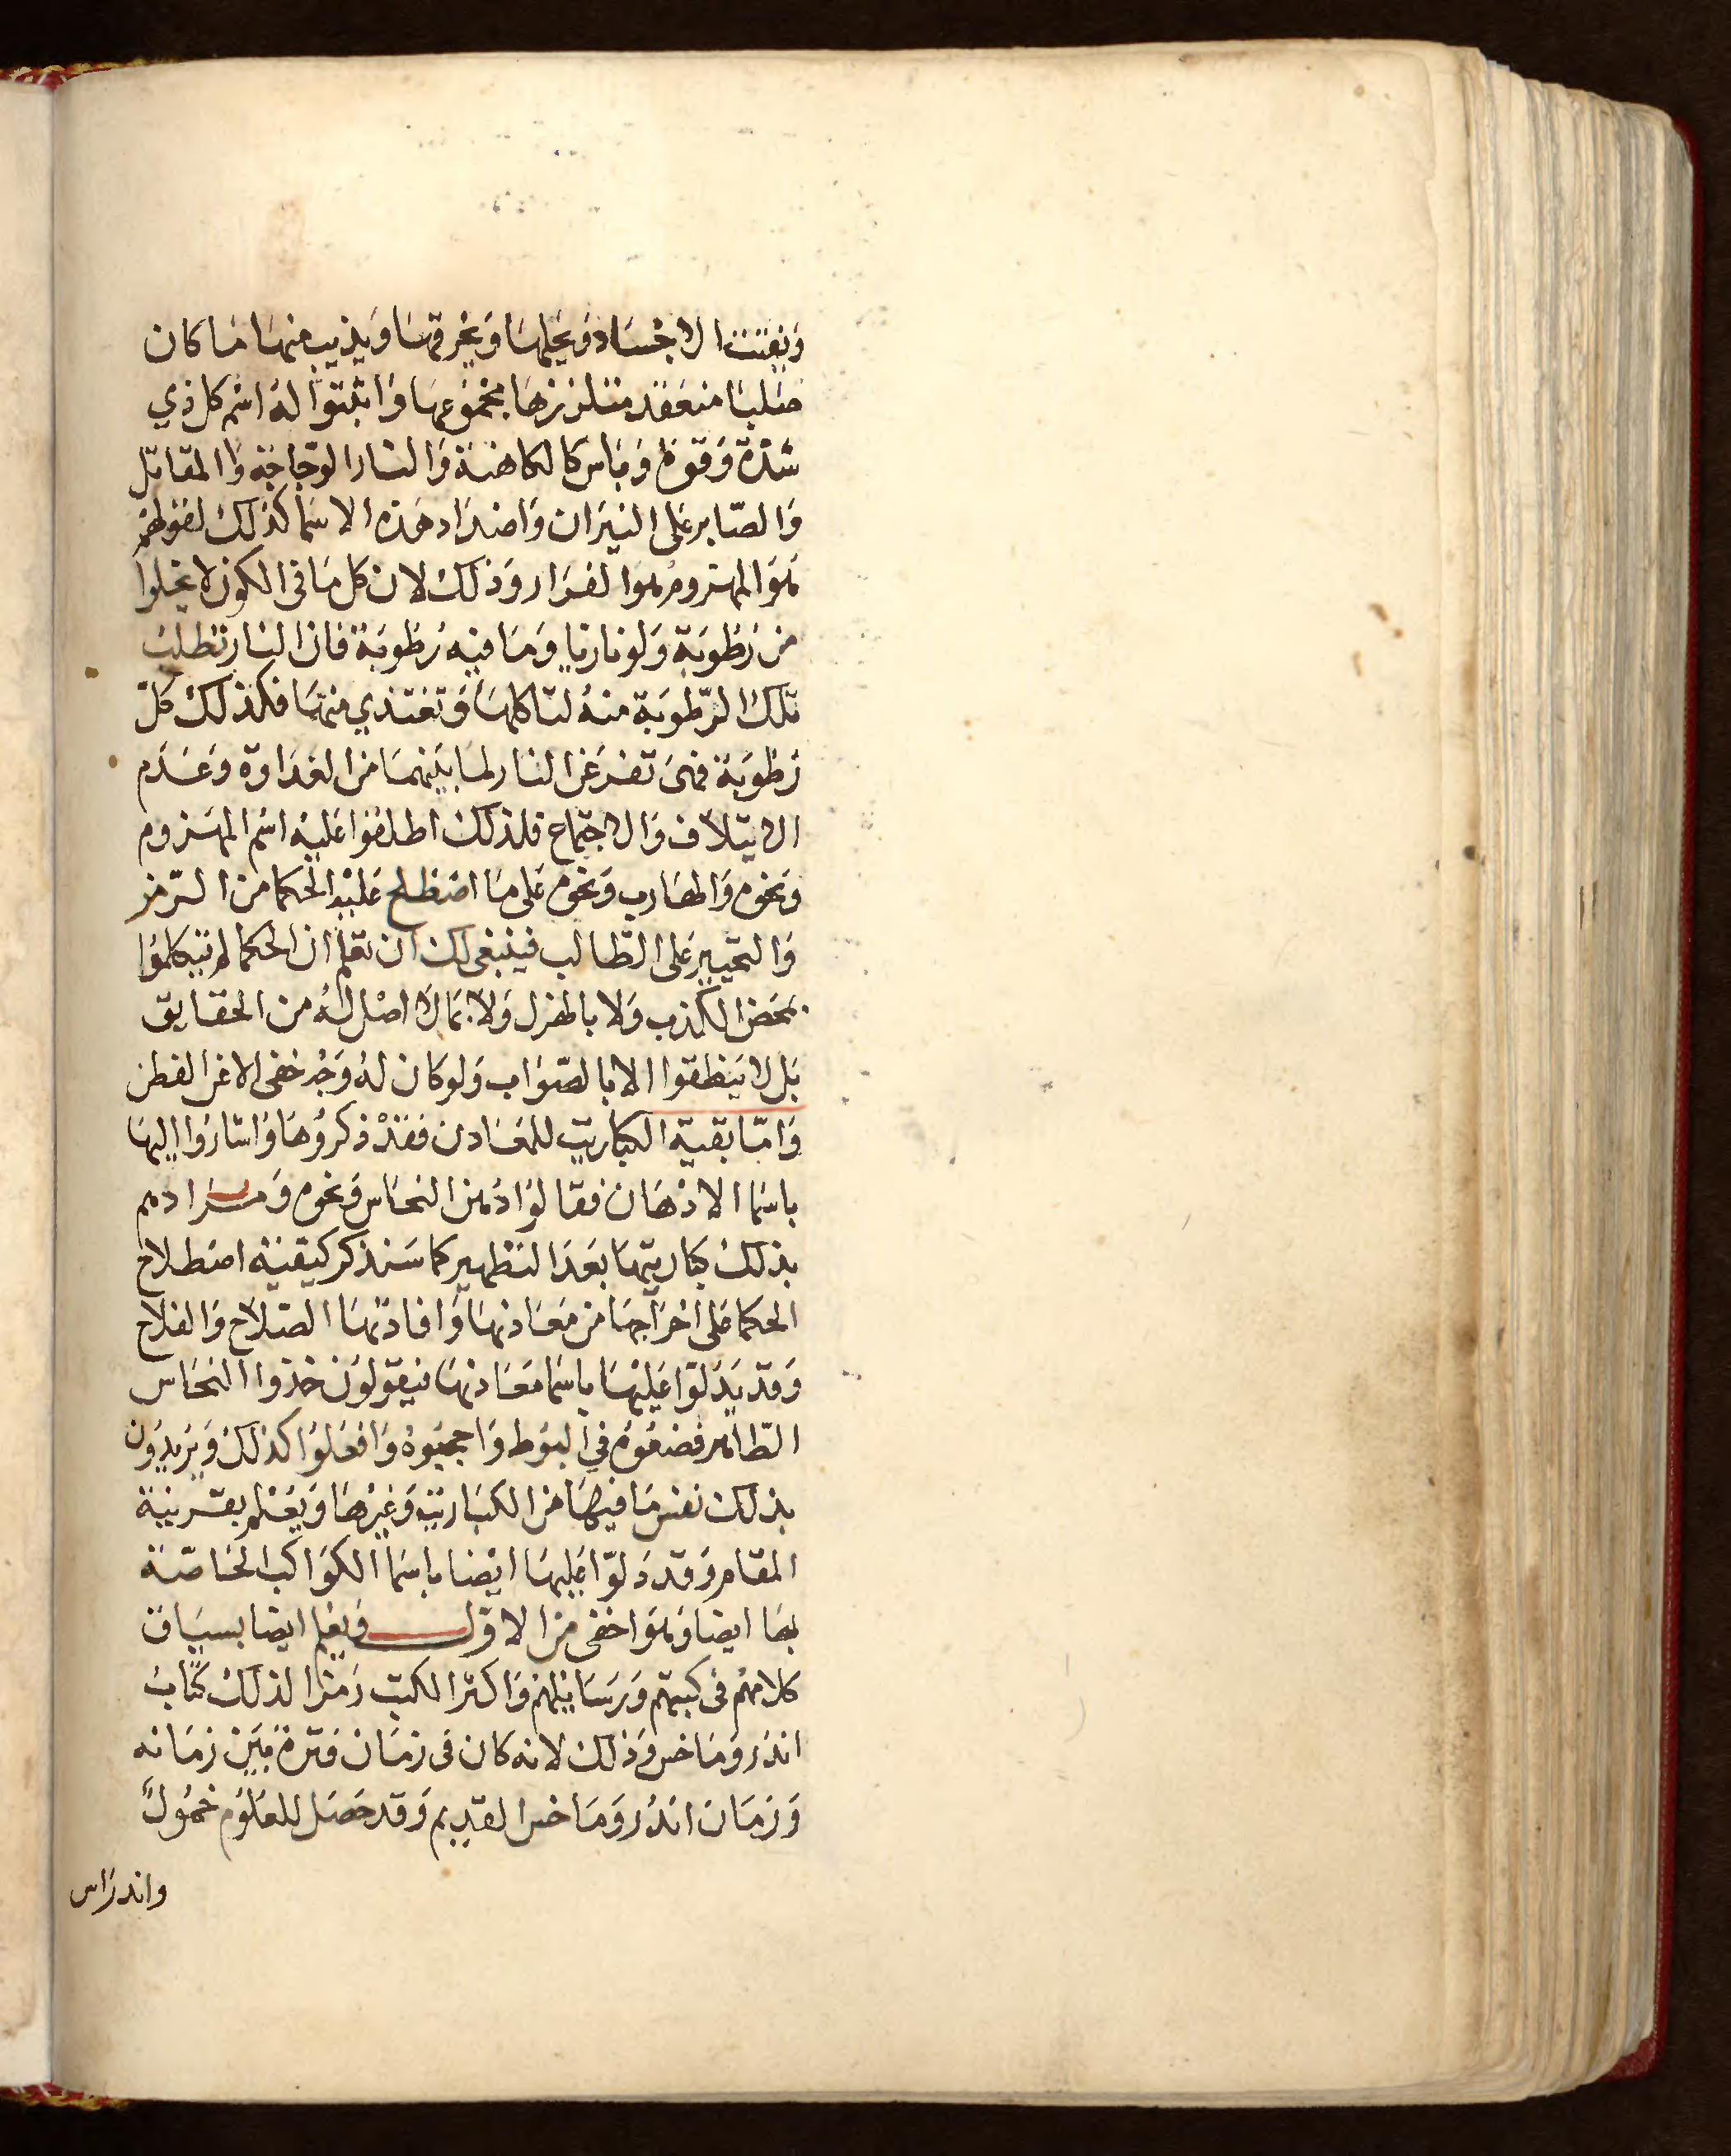 وَيفتت الاجْسَاد وَيحَلهَا وَيحْرقهَا وَيذيب منهَا مَا كان
صَلبًا منعَقد متلززهَا بمجْمُوعهَا وَاثبتوا لهُ اسْم كل ذي
شدّة وَقوة وَبَاس كالكاهنة وَالنار الوَهّاجة وَالمقاتل
وَالصّابر على النيرَان وَاضدَاد هَذه الاسمَا كذلك لقَولهمْ
هوَ المهزوم هوَ الفرَار وَذلك لان كل مَا في الكون لا يخلوا
من رُطوبَة وَلو نارنا وَمَا فيه رُطوبَة فان النار تطلبُ
تلك الرّطوبَة منهُ لتاكلهَا وَتغتذي منهَا فكذلك كل
رُطوبَة فهيَ تفر عَن النار لما بَينهمَا من العَدَاوة وَعَدَم
الايتلاف وَالاجتماع فلذلك اطلقوا عَليه اسْم المهزوم
وَنحوه وَالهَارب وَنحوه على مَا اصْطلح عَليْه الحكما من الرّمز
وَالتحيير على الطّالب فينبغي لك ان تعلم ان الحكما لم يتكلمُوا
بمحَض الكذب وَلا بالهزل وَلا بمَا لا اصْل لهُ من الحقايق
بَل لا يَنطقوا الا بالصّوَاب وَلو كان لهُ وَجْه خفي الا عن الفطن
وَامّا بقية الكباريت للمعَادن فقدْ ذكرُوهَا وَاشارُوا اليهَا
باسمَا الادْهَان فقالوا دُهن النحَاس وَنحوه وَمرَادهم
بذلك كباريتهَا بَعدَ التطْهير كما سَنذكر كيفية اصْطلاح
الحكما على اخرَاجهَا من مَعَادنهَا وَافادتهَا الصّلاح وَالفلاح
وَقد يَدّلوا عَليْهَا باسمَا مَعَادنهَا فيقولونَ خذوا النحَاس
الطّاهر فضعُوه في البُوط وَاجعَبُوهُ وَافعَلوا كذلك وَيريدُون
بذلك نفس مَا فيهَا من الكبَاريت وَغيرْهَا وَيَعْلم بقرينة
المقام وَقد دَلوّا عَليهَا ايْضا باسمَا الكوَاكب الخاصّة
بهَا ايضا وَهوَ اخفى من الاول وَيعلم ايضا بسيَاق
كلامهمْ في كتبهم وَرسَايلهمْ وَاكثر الكتب رَمزا لذلك كتابُ
اندرُومَاخس وَذلك لانه كان في زمَان فترة بَيَن زمَانه
وَزمَان اندرُومَاخس القديم وَقد حَصَل للعلوم خمُولٌ
واندرَاس